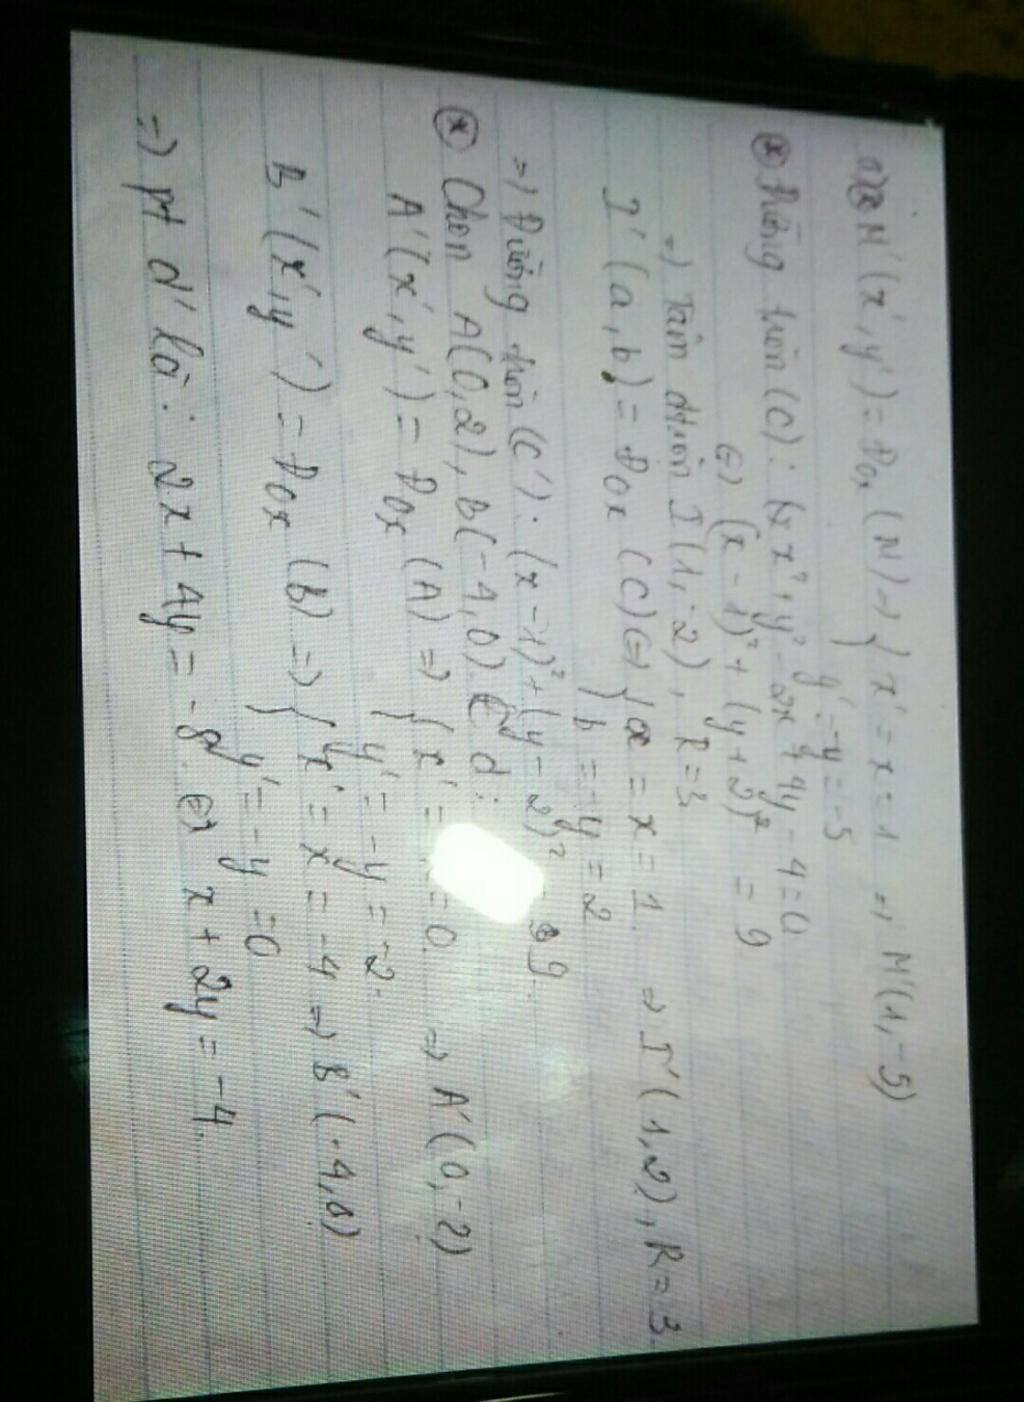 a) ⊛ M'(x',y') = Đox (M) => { x' = x = 1 => M'(1,-5)
y' = -y = -5
⊛ Đường tròn (C): x² + y² - 2x + 4y - 4 = 0
(=) (x - 1)² + (y + 2)² = 9
=> Tâm I(1,-2), R = 3
I'(a,b) = Đox (C) (=) { a = x = 1 => I'(1,2), R = 3
b = -y = 2
=> Đường tròn (C'): (x - 1)² + (y - 2)² = 9.
⊛ Chọn A(0,2), B(-4,0) ∈ d:
A'(x',y') = Đox (A) => { x' = x = 0 => A'(0,-2)
y' = -y = -2.
B'(x',y') = Đox (B) => { x' = x = -4 => B'(-4,0)
y' = -y = 0
=> pt d' là: 2x + 4y = -8 (=) x + 2y = -4.